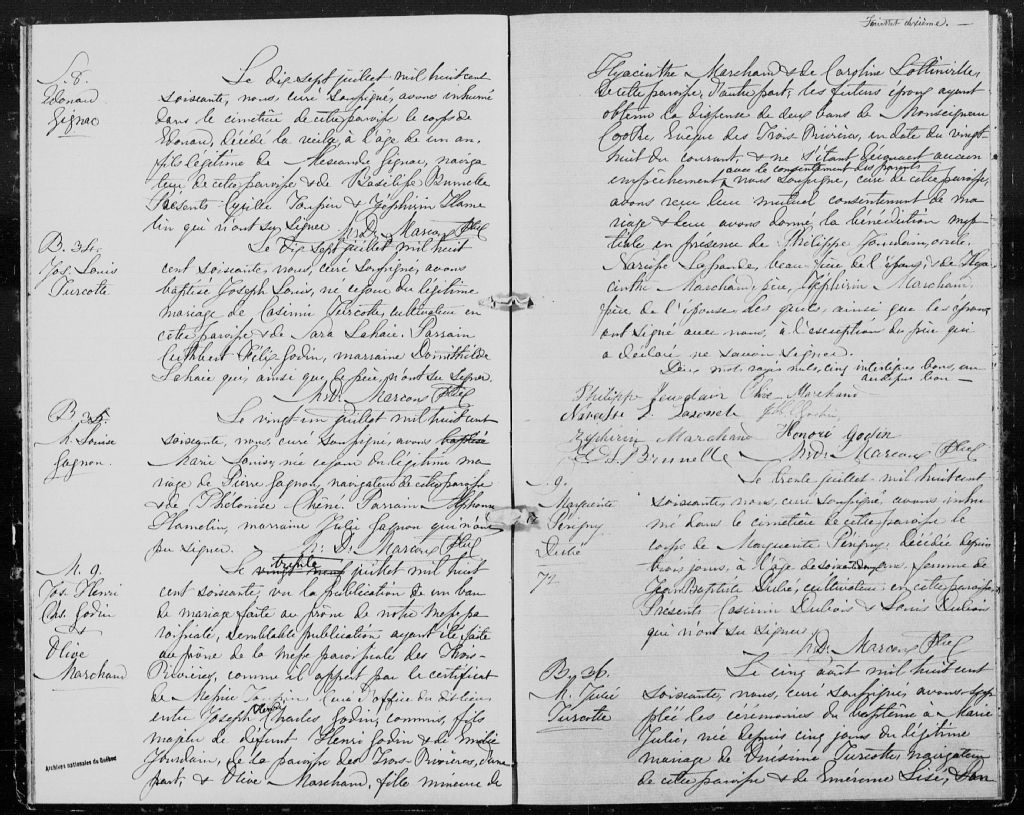 S. 8.
Edouard
Gignac
Le dix sept juillet mil huit cent
soixante, nous, curé soussigné, avons inhumé
dans le cimetière de cette paroisse le corps de
Edouard, décédé la veille à l'âge de un an,
fils légitime de Alexandre Gignac, naviga-
teur de cette paroisse & de Basilisse Brunelle
Présents Cyrille Toupin & Zéphirin Hame
lin qui n'ont su signer
D. Marcoux Ptre
B. 34.
Jos. Louis
Turcotte
Le dix sept juillet mil huit
cent soixante, nous, curé soussigné, avons
baptisé Joseph Louis, né ce jour du légitime
mariage de Casimir Turcotte, cultivateur en
cette paroisse & de Sara Lahaie. Parrain
Cuthbert Félix Godin, marraine Domithilde
Lahaie qui, ainsi que le père, n'ont su signer.
D. Marcoux Ptre
B. 35.
M. Louise
Gagnon.
Le vingt-un juillet mil huit cent
soixante, nous, curé soussigné, avons baptisé
Marie Louise, née ce jour du légitime ma
riage de Pierre Gagnon, navigateur de cette paroisse
& de Philonise Chêné. Parrain Alphonse
Hamelin, marraine Julie Gagnon qui n'ont
su signer.
D. Marcoux Ptre
M. 9.
Jos. Henri
Chs. Godin
&
Olive
Marchand
trente
Le vingt neuf juillet mil huit
cent soixante, vu la publication d'un ban
de mariage faite au prône de notre messe pa
roissiale, semblable publication ayant été faite
au prône de la messe paroissiale des Trois-
Rivières, comme il appert par le certificat
de Messire Toupin, Curé d'office du dit lieu,
Henri
entre Joseph Charles Godin, commis, fils
majeur de défunt Henri Godin & de Emélie
Jourdain, de la paroisse des Trois-Rivières, d'une
part, & Olive Marchand, fille mineure de
Archives nationales du Québec
Feuillet dixième.
Hyacinthe Marchand & de Caroline Lottinville,
de cette paroisse, d'autre part, les futurs époux ayant
obtenu la dispense de deux bans de Monseigneur
Cooke, Evêque des Trois Rivières, en date du vingt
huit du courant, & ne s'étant découvert aucun
avec le consentement des parents
empêchement, nous soussigné, curé de cette paroisse,
avons reçu leur mutuel consentement de ma
riage & leur avons donné la bénédiction nup
tiale en présence de Philippe Jourdain, oncle,
Narcisse Lasonde, beau-frère de l'époux, & de Hya
cinthe Marchand, père, Zéphirin Marchand,
frère de l'épouse les quels, ainsi que les époux
ont signé avec nous, à l'exception du père qui
a déclaré ne savoir signer.
Deux mots rayés nuls, cinq interlignes bons, un
autre bon
Philippe Jourdain Olive Marchand
Narcisse Jos. Godin
Zéphirin Marchand Honoré Godin
Brunelle D. Marcoux Ptre
S. 9.
Marguerite
Périgny
Dubé
72
Le trente juillet mil huit cent
soixante, nous, curé soussigné, avons inhu
mé dans le cimetière de cette paroisse le
corps de Marguerite Périgny, décédée depuis
trois jours, à l'âge de soixante ans, femme de
Jean Baptiste Dubé, cultivateur en cette paroisse.
Présents Casimir Dubois & Louis Dubois
qui n'ont su signer
D. Marcoux Ptre
B. 36.
M. Julie
Turcotte
Le cinq août mil huit cent
soixante, nous, curé soussigné, avons sup
pléé les cérémonies du baptême à Marie
Julie, née depuis cinq jours du légitime
mariage de Onésime Turcotte, navigateur
de cette paroisse & de Emerence Lisé, Par